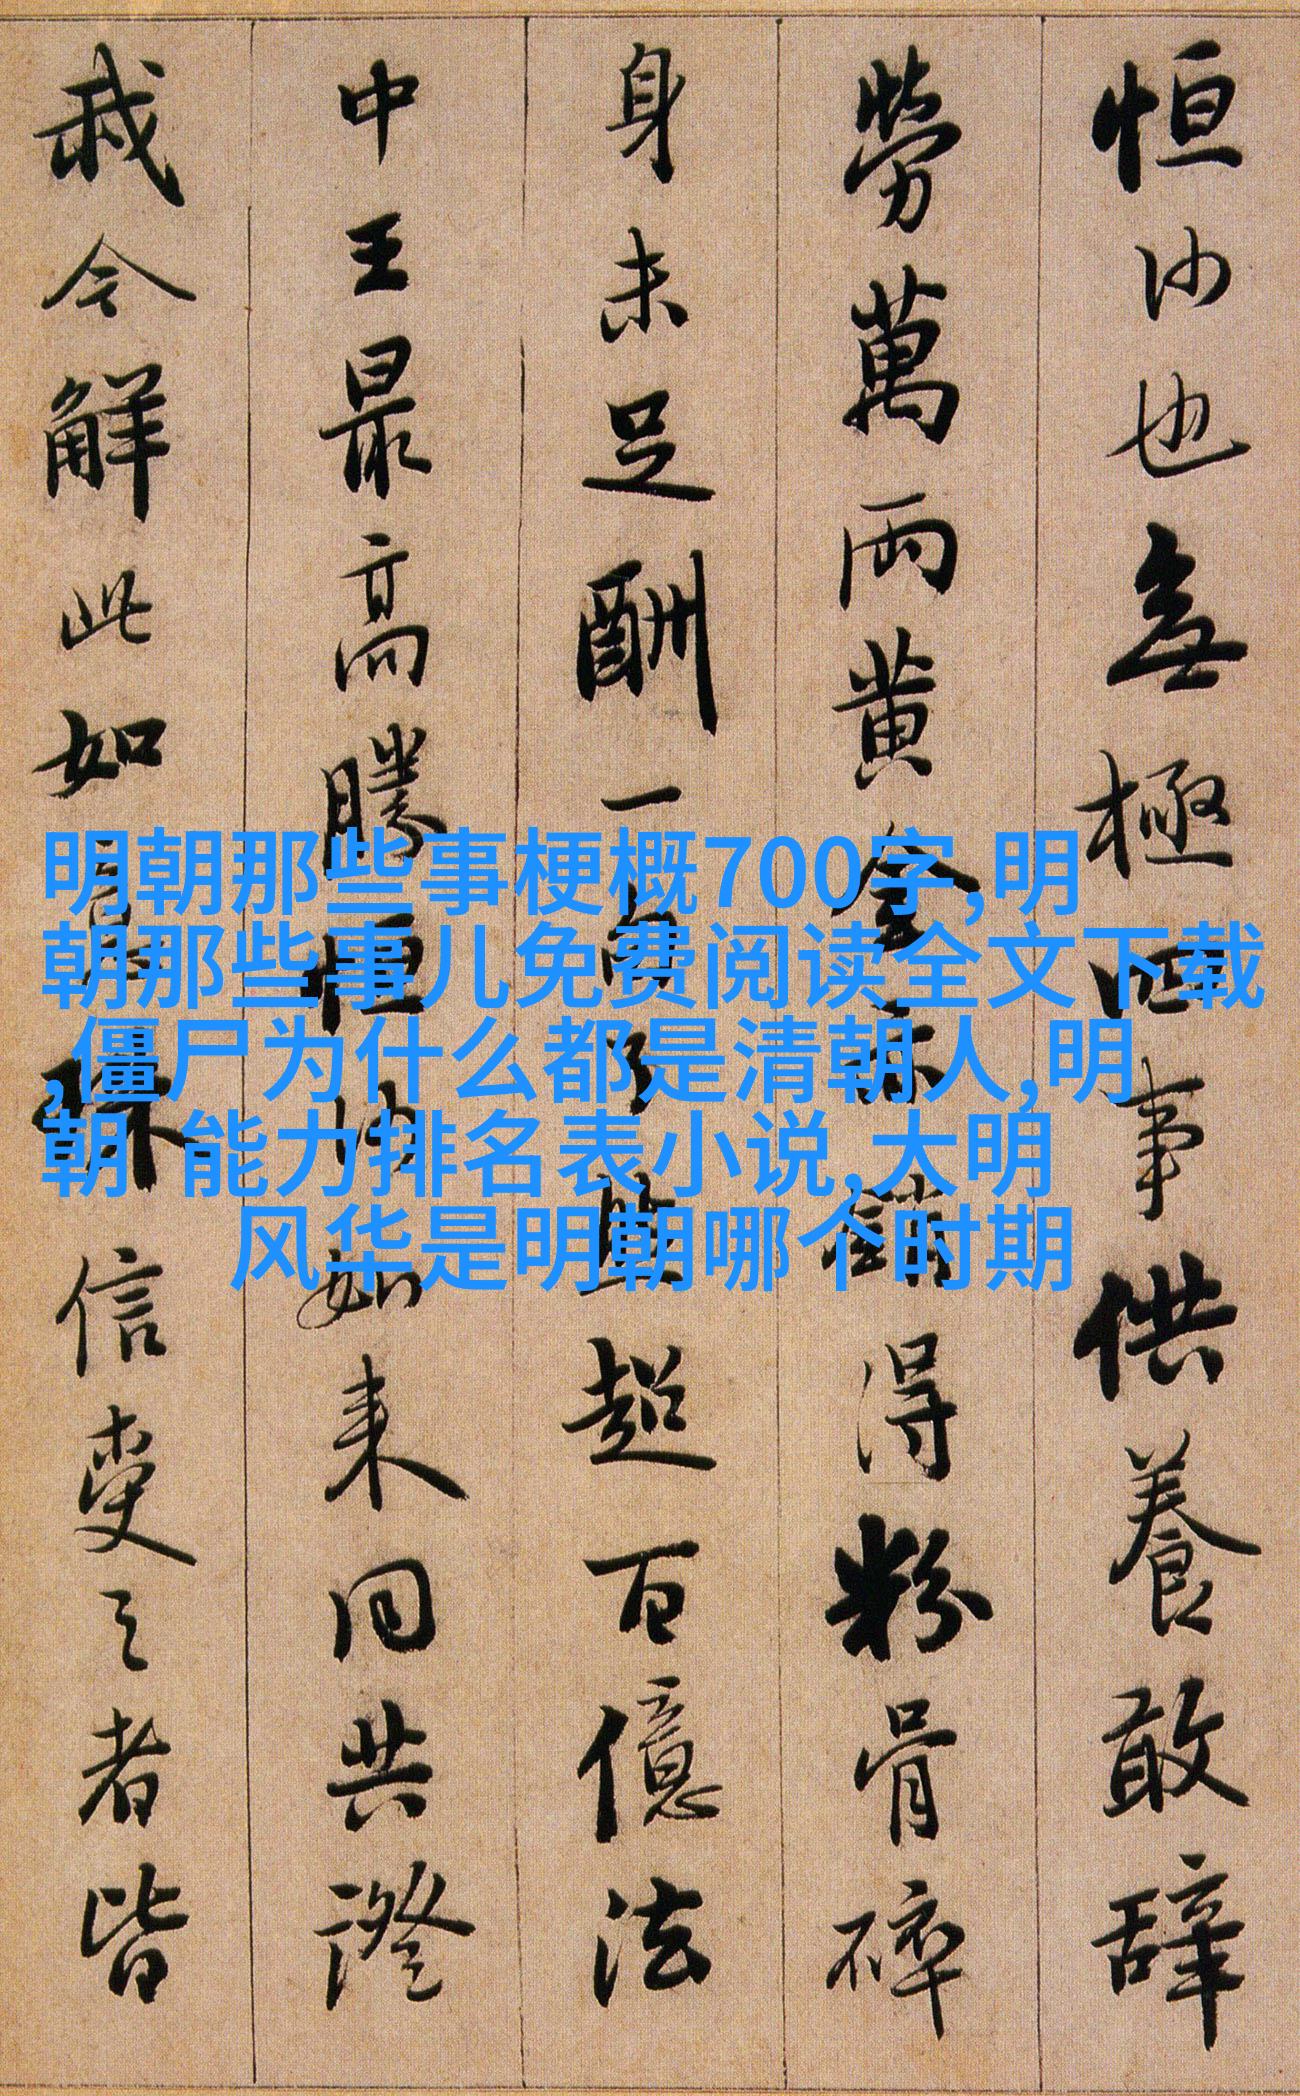 恒沙也無極四事供養敢辞
勞萬兩黄金亦銷得粉骨碎
身未足酬一句了超百億法
中王最高勝恒沙如来同共證
我今解此如意珠信受之者皆
明朝那些事梗概700字,明
朝那些事儿免费阅读全文下载
,僵尸为什么都是清朝人,明
朝 能力排名表小说,大明
风华是明朝哪个时期